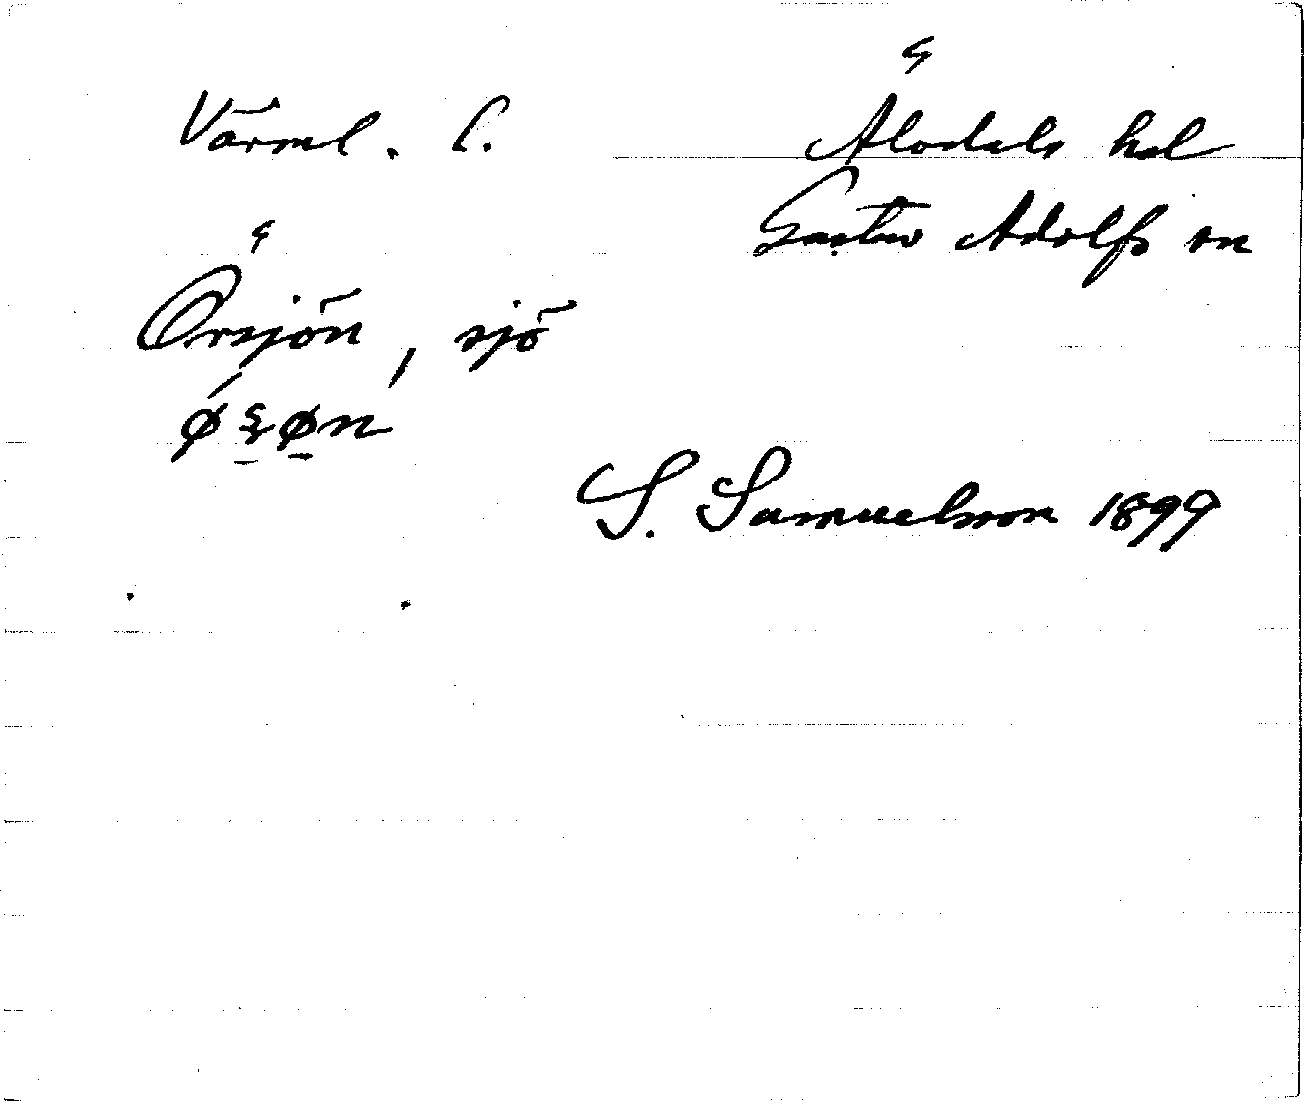 Värml. l.
Älvdals hd
Gustav Adolfs sn
Örsjön, sjö
S. Samuelsson 1899